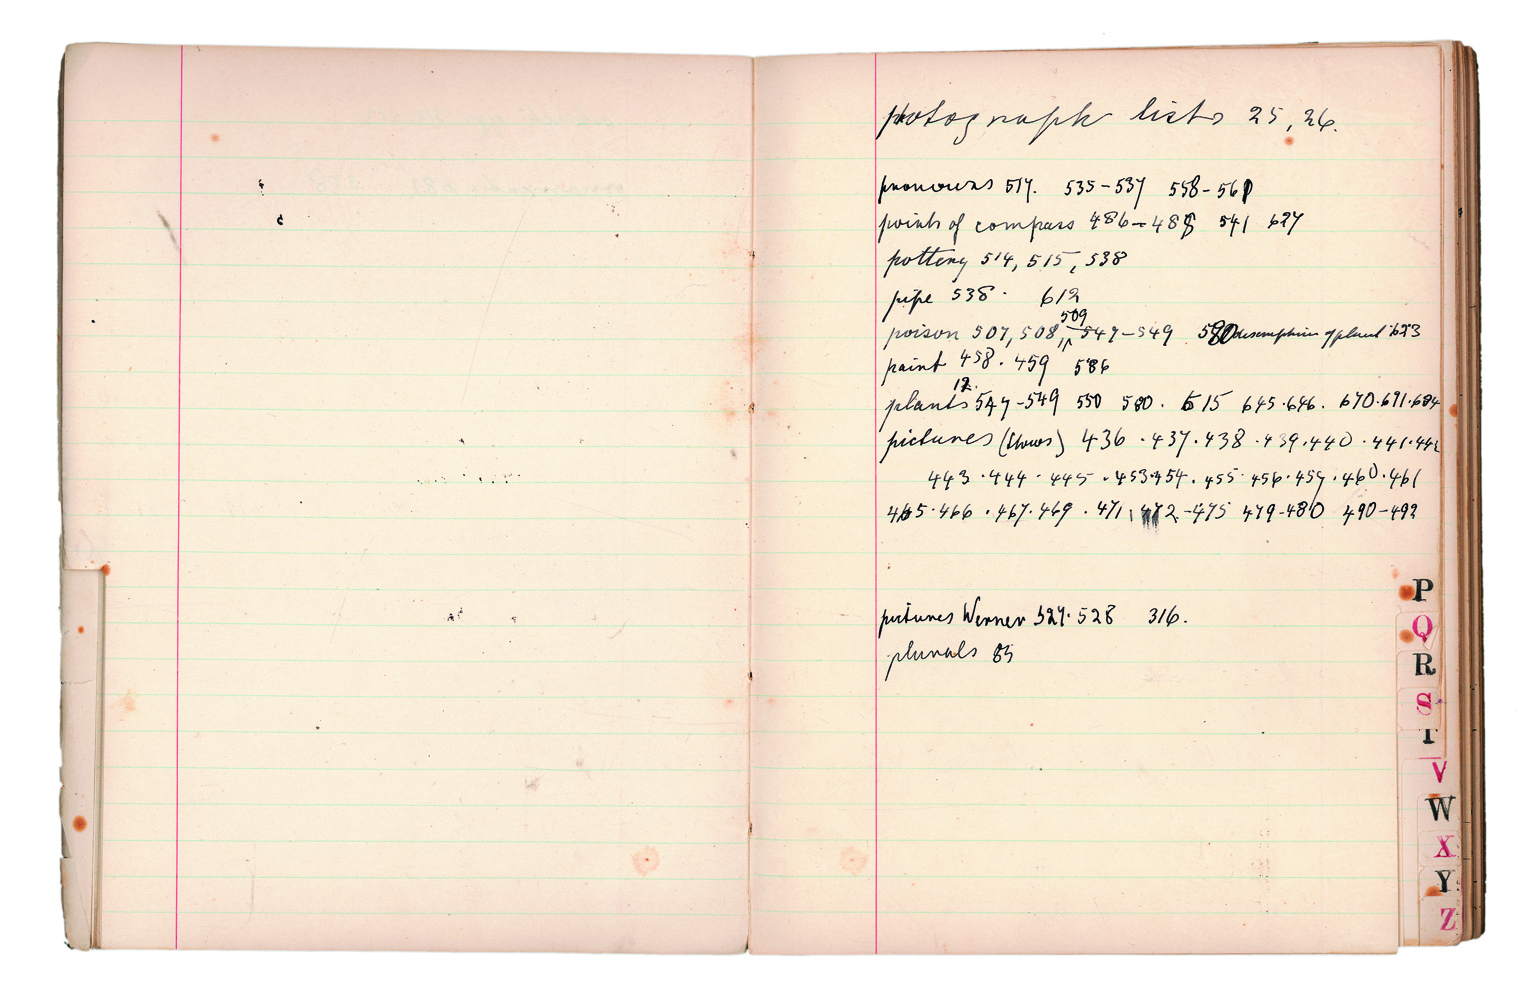 photograph lists 25, 26.
pronouns 517. 535-537 558-561
points of compass 486-488 541 627
pottery 514, 515, 538
pipe 538. 612
509
poison 507, 508, 547-549 580 description of plant 623
paint 458. 459 586
12.
plants 547-549 550 580. 615 645.646. 670.691.684
pictures (thows) 436 .437.438 .439.440 .441.442
443 .444. 445 .453.454. 455. 456.457.460.461
465.466 .467.469 .471, 472-475 479-480 490-492
pictures Werner 527.528 316.
plurals 85
P
Q
R
S
T
V
W
X
Y
Z